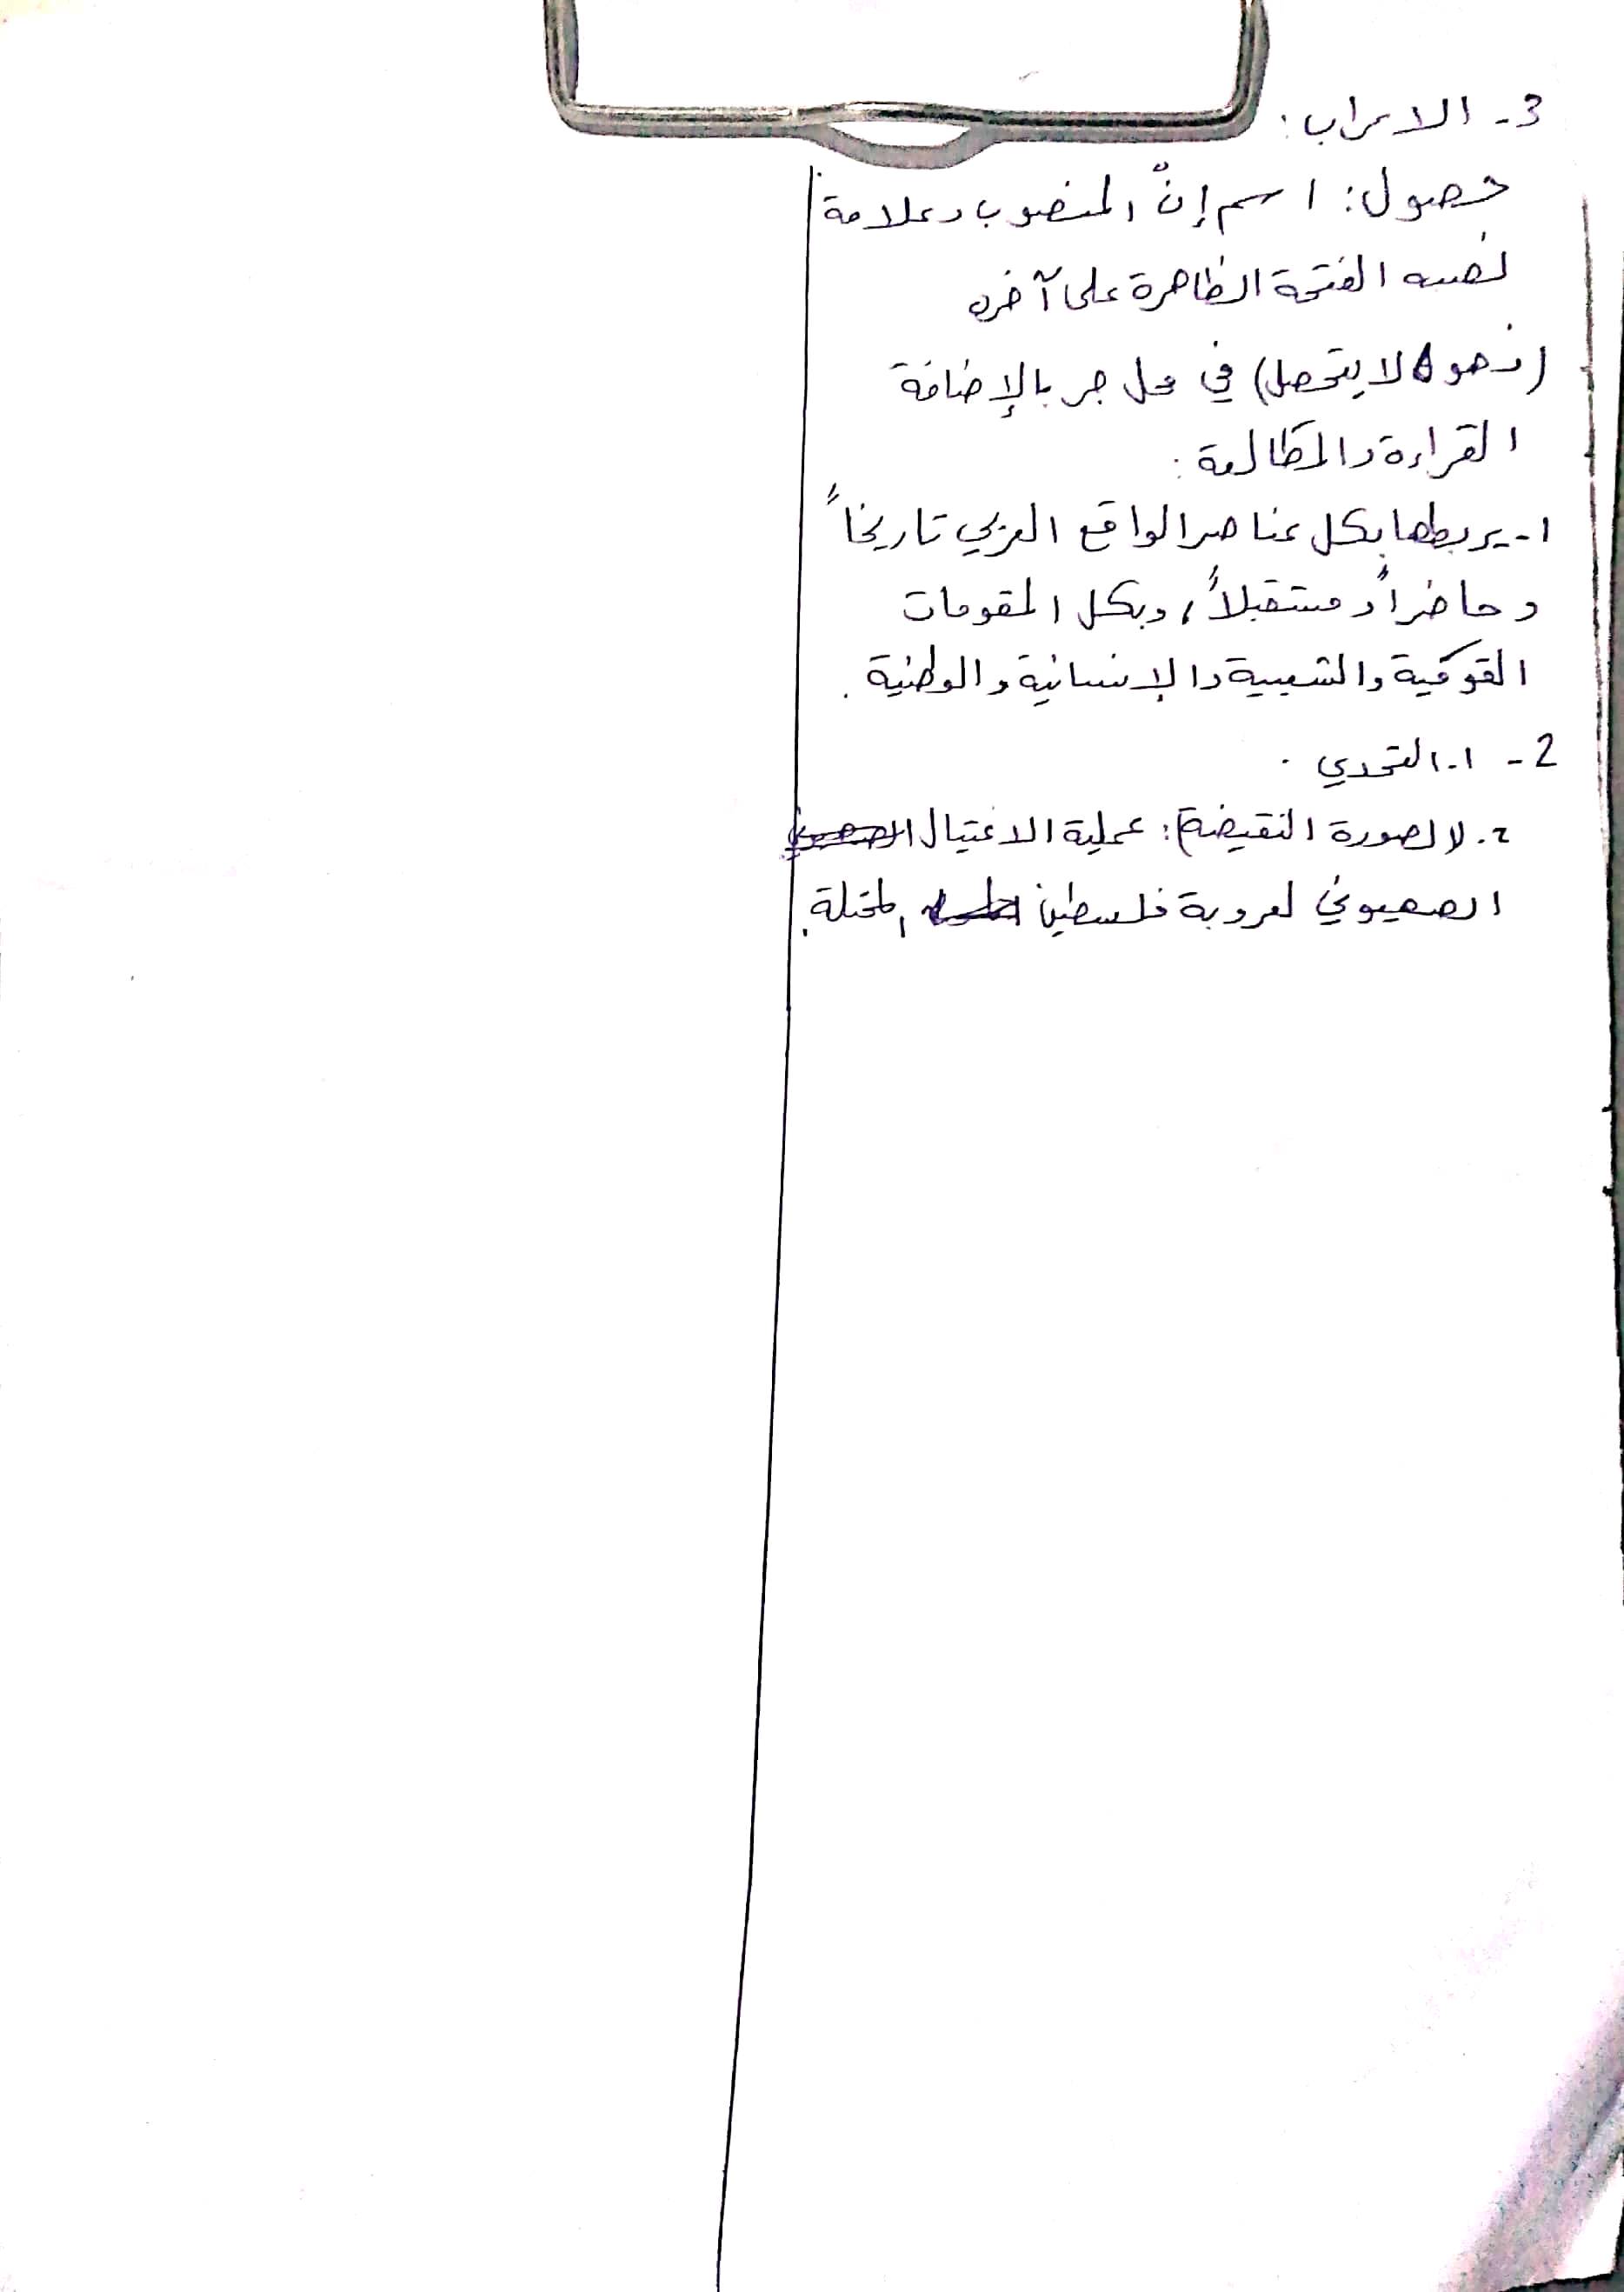 3- الاعراب:
حصول: اسم إنّ المنصوب وعلامة
نصبه الفتحة الظاهرة على آخره
(فهو لا يتحصل) في محل جر بالإضافة
القراءة والمطالعة:
1- يربطها بكل عناصر الواقع العربي تاريخاً
وحاضراً ومستقبلاً، وبكل المقومات
القومية والشعبية والإنسانية والوطنية.
2- 1- التحدي.
2. (الصورة النقيضة): عملية الاغتيال
الصهيوني لعروبة فلسطين المحتلة.